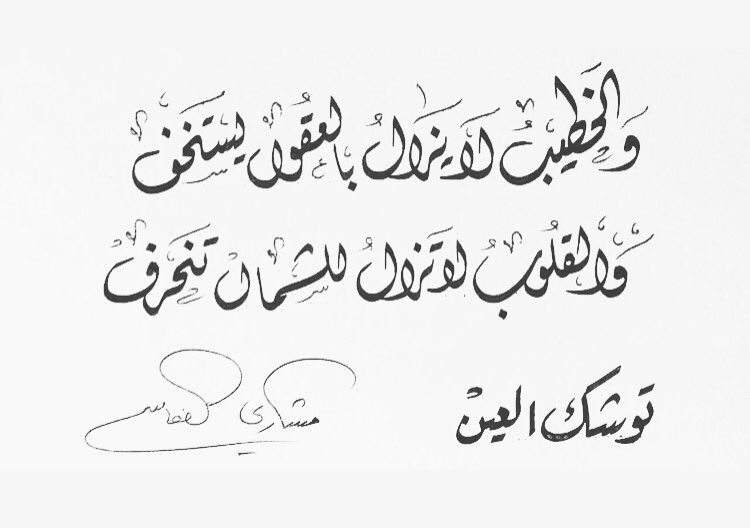 وَالخَطِيبُ لَا يَزَالُ بِالعُقُولْ يَسْتَخِفّ
وَالقُلُوبُ لَا تَزَالُ لِلشِّمَالْ تَنْحَرِفْ
توشك العينْ
مشاري